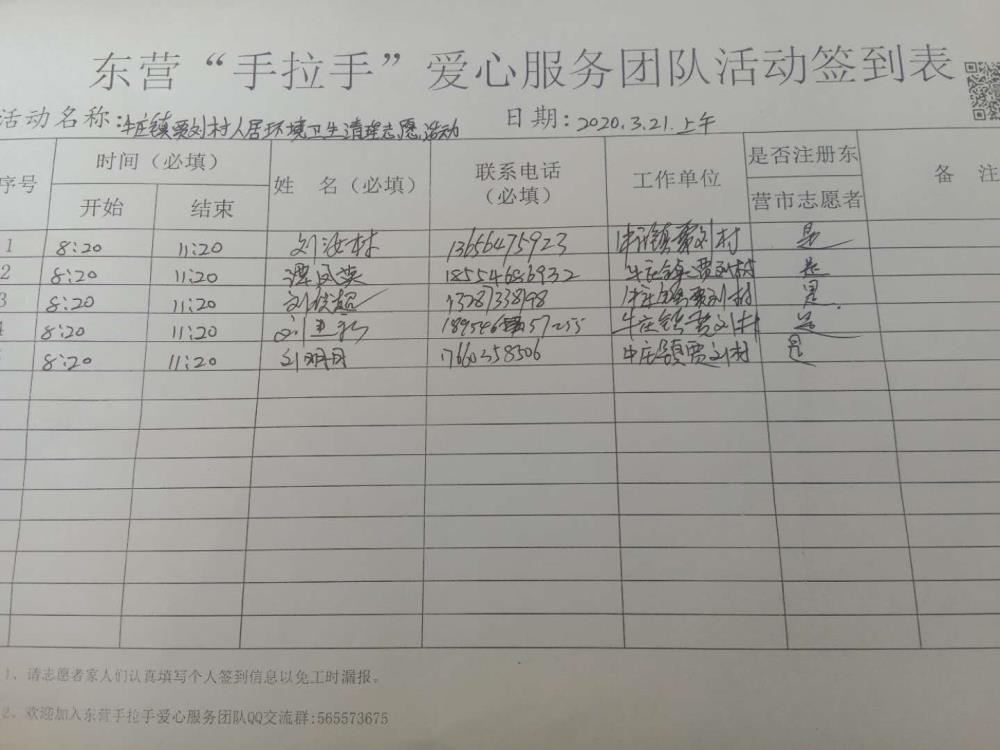 东营“手拉手”爱心服务团队活动签到表
活动名称:牛庄镇贾刘村人居环境卫生清理志愿活动 日期:2020.3.21.上午
序号 时间（必填） 姓 名（必填） 联系电话（必填） 工作单位 是否注册东营市志愿者 备 注
开始 结束
1 8:20 11:20 刘汝林 13656475923 牛庄镇贾刘村 是
2 8:20 11:20 谭凤英 18554686932 牛庄镇贾刘村 是
3 8:20 11:20 13287338198 牛庄镇贾刘村 是
4 8:20 11:20 牛庄镇贾刘村 是
8:20 11:20 刘明月 17660358506 牛庄镇贾刘村 是
1、请志愿者家人们认真填写个人签到信息以免工时漏报。
2、欢迎加入东营手拉手爱心服务团队QQ交流群:565573675